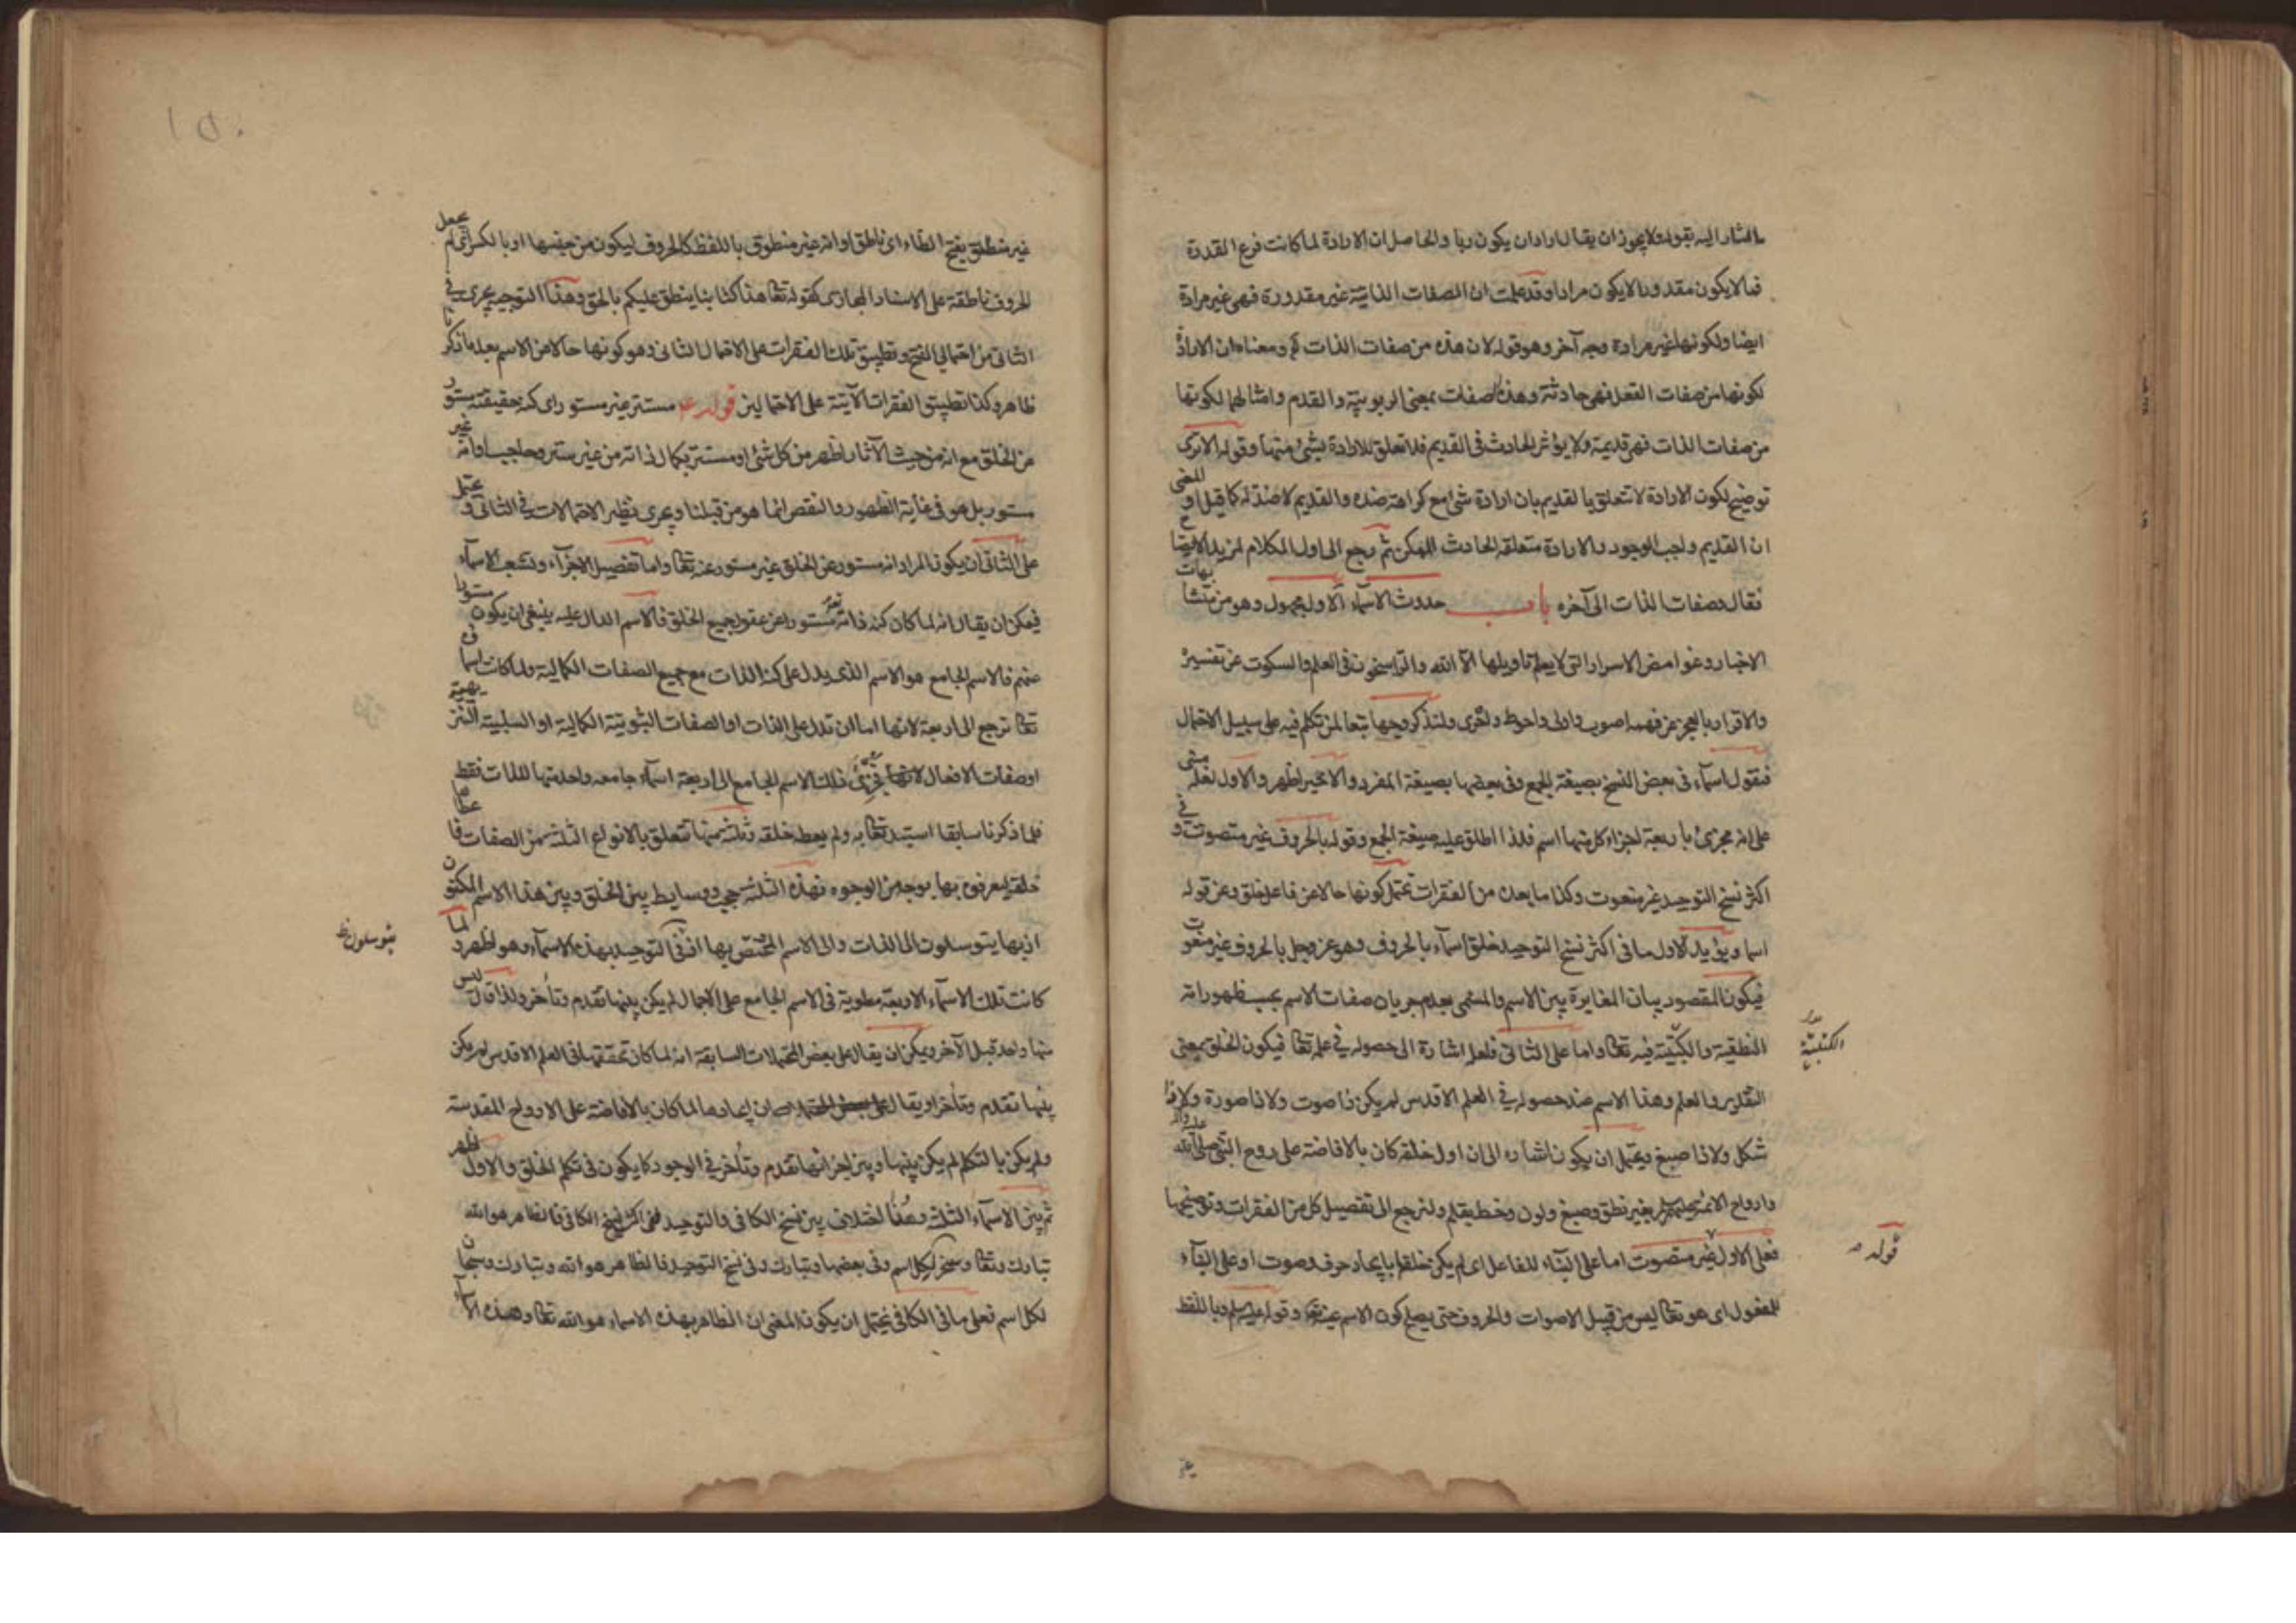 المشار اليه بقوله ولا يجوز ان يقال اراد ان يكون ربا والحاصل ان الارادة لما كانت فرع القدرة
فما لا يكون مقدورا لا يكون مرادا وقد علمت ان الصفات الذاتية غير مقدورة فهى غير مرادة
ايضا ولكونها غير مرادة وجه آخر وهو قوله لان هذه من صفات الذات ومعناه ان الارادة
لكونها من صفات الفعل فهى حادثة وهذه الصفات بمعنى الربوبية والقدم وامثالهما لكونها
من صفات الذات فهى قديمة ولا يؤثر الحادث فى القديم فلا تعلق للارادة بشئ منها وقوله الا ترى
توضيح لكون الارادة لا تتعلق بالقديم بان ارادة شئ مع كراهة ضده والقديم لا ضد له كما قيل او المعنى
ان القديم واجب الوجود والارادة متعلقة الحادث الممكن ثم رجع الى اول الكلام لمزيد الايضاح
فقال وصفات الذات الى آخره باب حدوث الاسماء الاول مجهول وهو من متشابهات
الاخبار وغوامض الاسرار التى لا يعلم تاويلها الا الله والراسخون فى العلم والسكوت عن تفسيره
والاقرار بالعجز عن فهمه اصوب واولى واحوط واحرى ولنذكر وجها تبعا لمن تكلم فيه على سبيل الاحتمال
فنقول اسماء فى بعض النسخ بصيغة الجمع وفى بعضها بصيغة المفرد والاخير اظهر والاول لعله مبنى
على انه مجزئ باربعة اجزاء كل منها اسم فلذا اطلق عليه صيغة الجمع وقوله بالحروف غير متصوت وفى
اكثر نسخ التوحيد غير منعوت وكذا ما بعده من الفقرات تحتمل كونها حالا عن فاعل خلق وعن قوله
اسما ويؤيد الاول ما فى اكثر نسخ التوحيد خلق اسماء بالحروف وهو عز وجل بالحروف غير منعوت
فيكون المقصود بيان المغايرة بين الاسم والمسمى بعدم جريان صفات الاسم بحسب ظهوراته
النطقية والكتبية فيه تعا واما على الثانى فلعله اشارة الى حصوله فى علمه تعا فيكون الخلق بمعنى
الكتبية
التقدير والعلم وهذا الاسم عند حصوله فى العلم الاقدس لم يكن ذا صوت ولا ذا صورة ولا ذا
شكل ولا ذا صبغ ويحتمل ان يكون اشارة الى ان اول خلقه كان بالافاضة على روح النبى صلى الله عليه واله
وارواح الائمة بغير نطق وصبغ ولون وخط بقلم ولنرجع الى تفصيل كل من الفقرات وتوضيحها
فعلى الاول غير متصوت اما على البناء للفاعل اى لم يكن خلقها بايجاد حرف وصوت او على البناء
قوله
للمفعول اى هو تعا ليس من قبيل الاصوات والحروف حتى يصلح كون الاسم عينه تعا وقوله وباللفظ
غير منطق بفتح الطاء اى ناطق او انه غير منطوق باللفظ كالحروف ليكون من جنسها او بالكسر اى لم يجعل
الحروف ناطقة على الاسناد المجازى كقوله تعا هذا كتابنا ينطق عليكم بالحق وهذا التوجيه يجرى فى
الثانى من احتمالى الفتح وتطبيق تلك الفقرات على الاحتمال الثانى وهو كونها حالا من الاسم بعد ما ذكرنا
ظاهر وكذا تطبيق الفقرات الآتية على الاحتمالين قوله مستتر غير مستور اى كنه حقيقته مستور
عن الخلق مع انه من حيث الآثار اظهر من كل شئ او مستتر بكمال ذاته من غير ستر وحاجب او انه غير
مستور بل هو فى غاية الظهور والنقص انما هو من قبلنا ويجرى نظير الاحتمالات فى الثانى و يحتمل
على الثانى ان يكون المراد انه مستور عن الخلق غير مستور عنه تعا واما تفصيل الاجزاء وتشعب الاسماء
فيمكن ان يقال انه لما كان كنه ذاته مستورا عن عقول جميع الخلق فالاسم الدال عليه ينبغى ان يكون مستورا
عنهم فالاسم الجامع هو الاسم الذى يدل على كنه الذات مع جميع الصفات الكمالية ولما كانت اسماؤه
تعا ترجع الى اربعة لانها اما ان تدل على الذات او الصفات الثبوتية الكمالية او السلبية التنزيهية
او صفات الافعال فجزئ ذلك الاسم الجامع الى اربعة اسماء جامعة واحد منها للذات فقط
فلما ذكرنا سابقا استبد تعا به ولم يعطه خلقه وثلثة منها تتعلق بالانواع الثلثة من الصفات فاعطاها
خلقه ليعرفوه بها بوجه من الوجوه فهذه الثلثة حجب ووسايط بين الخلق وبين هذا الاسم المكنون
اذ بها يتوسلون الى الذات والى الاسم المختص بها اذ فى التوحيد بهذه الاسماء وهو اظهر ولما
يتوسلون ظ
كانت تلك الاسماء الاربعة مطوية فى الاسم الجامع على الاجمال لم يكن بينها تقدم وتأخر ولذا قال ليس
منها واحد قبل الآخر ويمكن ان يقال على بعض المحتملات السابقة انه لما كان تحققها فى العلم الاقدس لم يكن
بينها تقدم وتأخر او يقال ان ايجادها لما كان بالافاضة على الارواح المقدسة
ولم يكن بالتكلم لم يكن بينها وبين اجزائها تقدم وتأخر فى الوجود كما يكون فى تكلم الخلق والاول اظهر
ثم بين الاسماء الثلثة وهنا اختلاف بين نسخ الكافى والتوحيد ففى اكثر نسخ الكافى فالظاهر هو الله
تبارك وتعا وسخر لكل اسم وفى بعضها وتبارك وفى نسخ التوحيد فالظاهر هو الله وتبارك وسبحان
لكل اسم فعلى ما فى الكافى يحتمل ان يكون المعنى ان الظاهر بهذه الاسماء هو الله تعا وهذه الاسماء